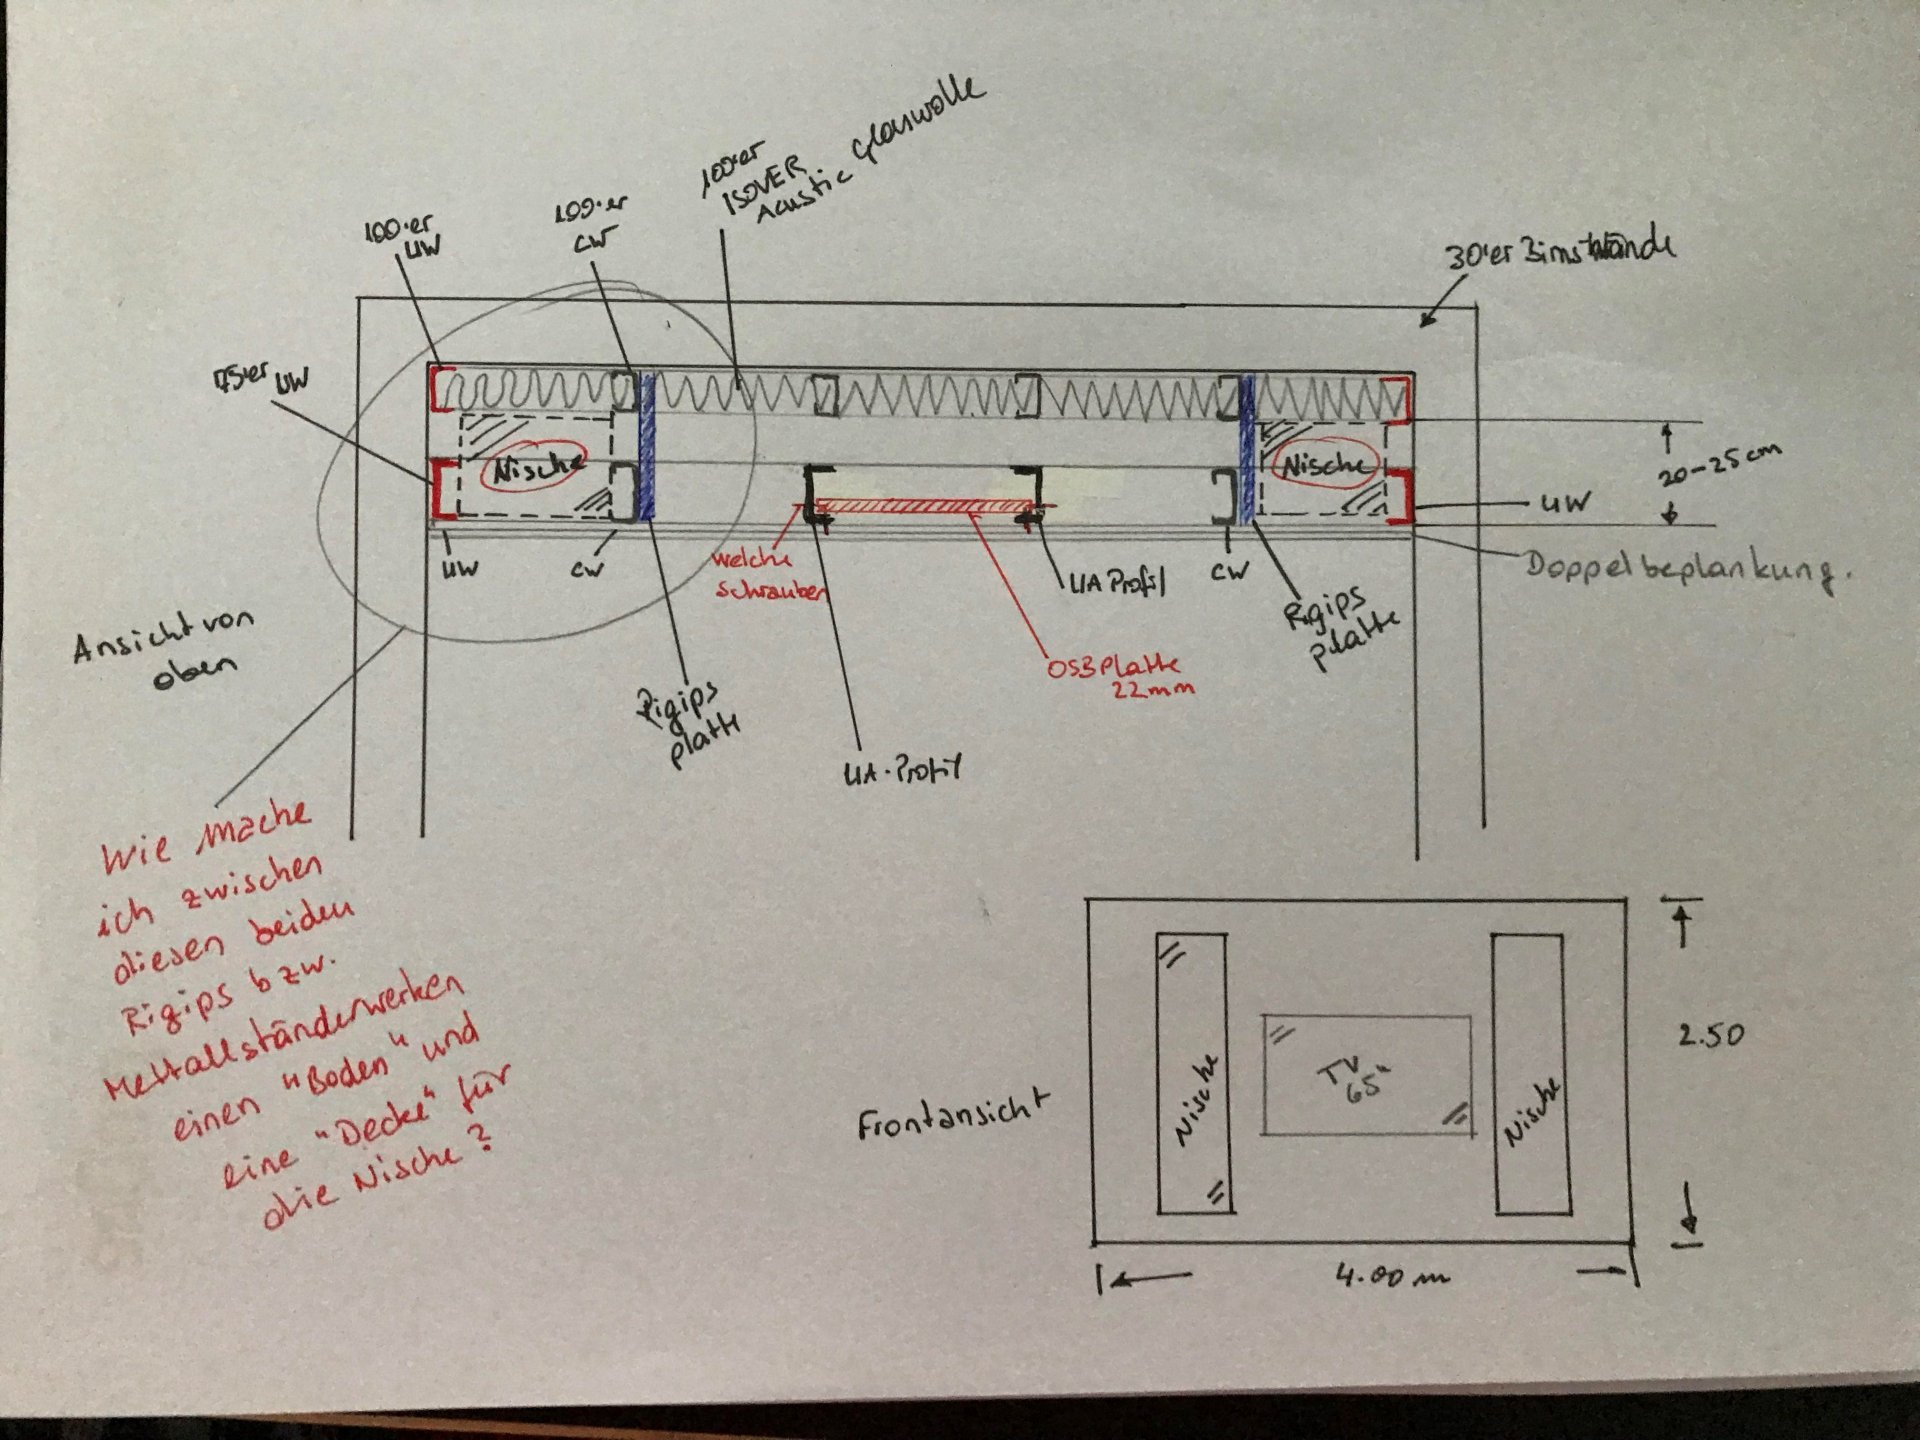 100'er
ISOVER
Acustic Glaswolle
100'er
UW
100'er
CW
30'er Bimswände
75'er UW
Nische
Nische
20-25cm
UW
UW
CW
welche
schrauben
UA Profil
CW
Doppelbeplankung.
Rigips
platte
OSB Platte
22mm
Ansicht von
oben
Rigips
platte
UA-Profil
Wie mache
ich zwischen
diesen beiden
Rigips bzw.
Mettallständerwerken
einen "Boden" und
eine "Decke" für
die Nische?
Frontansicht
Nische
TV
65"
Nische
2.50
4.00 m